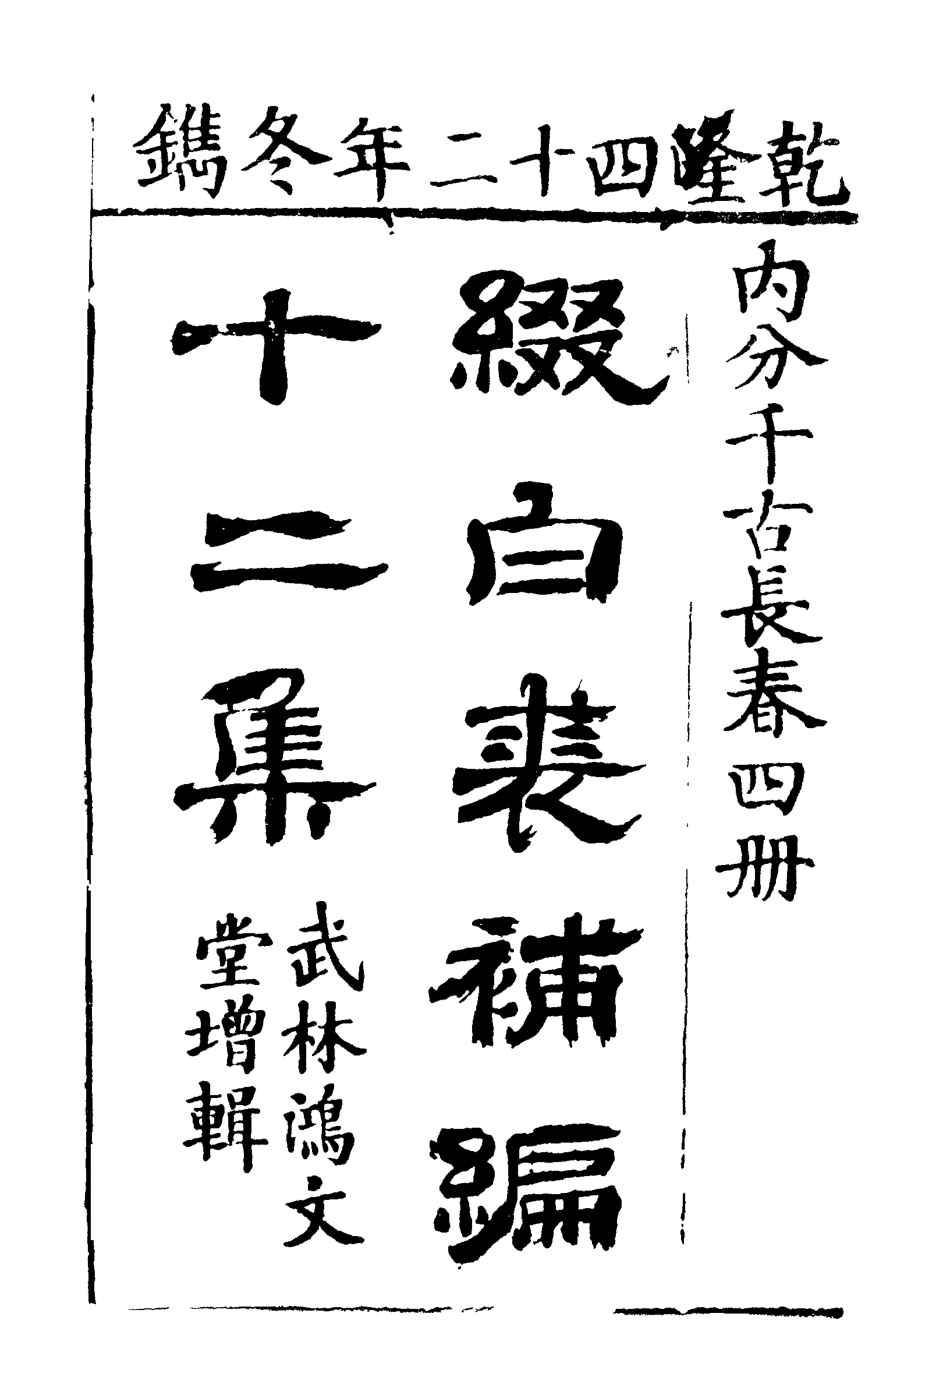 乾隆四十二年冬鐫
內分千古長春四册
綴白裘補編
十二集
武林鴻文
堂增輯